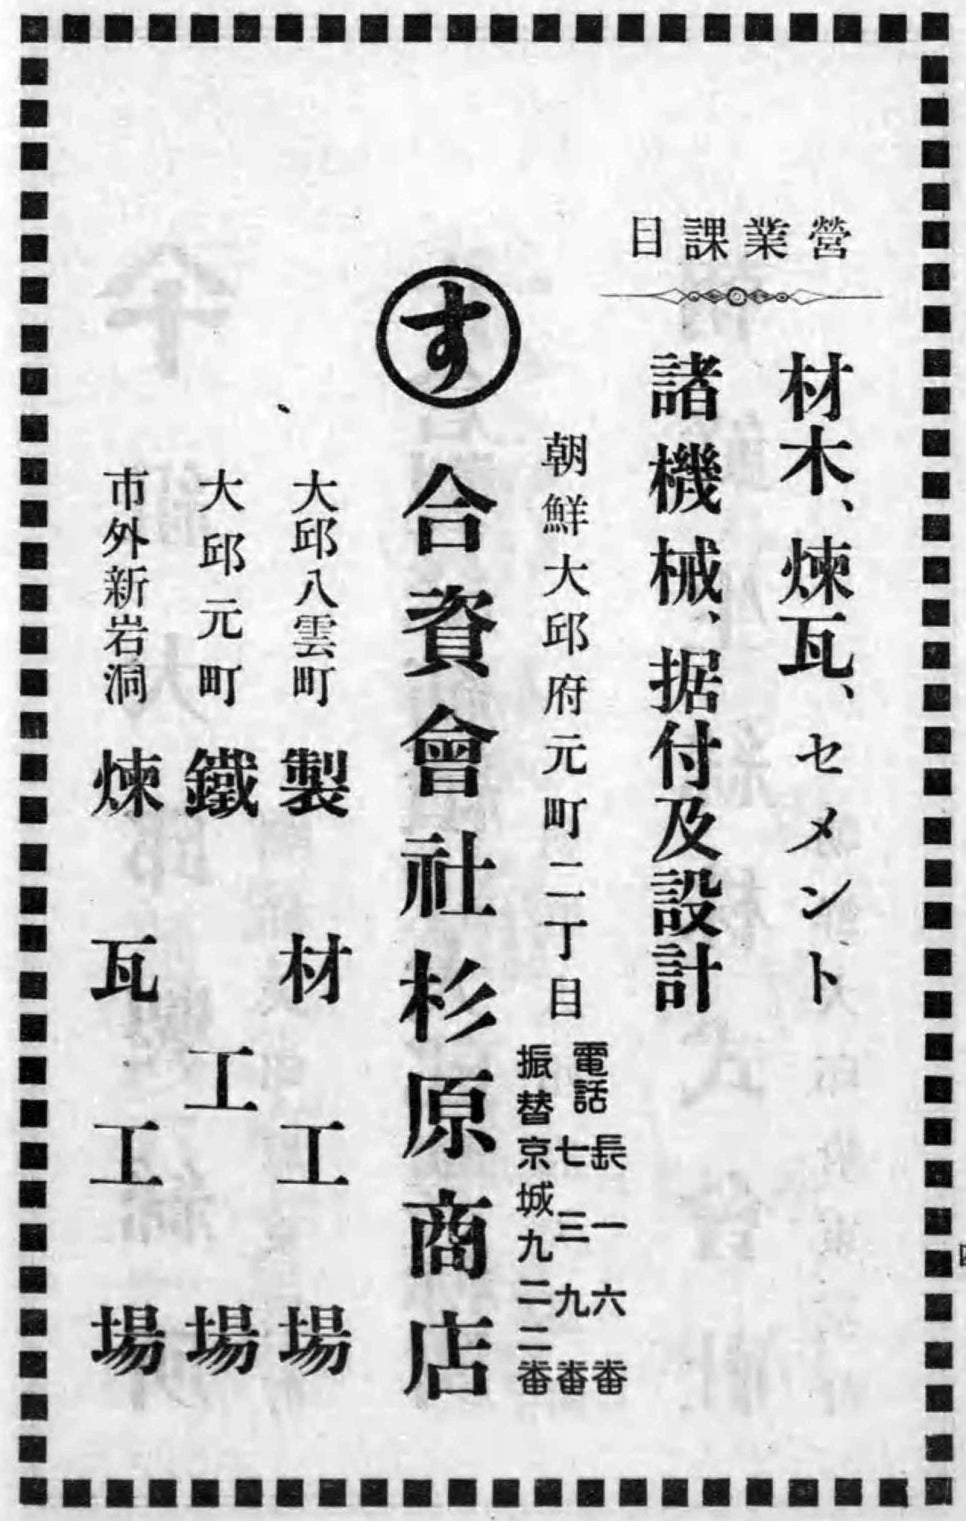 營業課目
材木、煉瓦、セメント
諸機械、据付及設計
朝鮮大邱府元町二丁目
電話
長一六番
七三九番
振替京城九二二番
す
合資會社杉原商店
大邱八雲町 製材工場
大邱元町 鐵工場
市外新岩洞 煉瓦工場